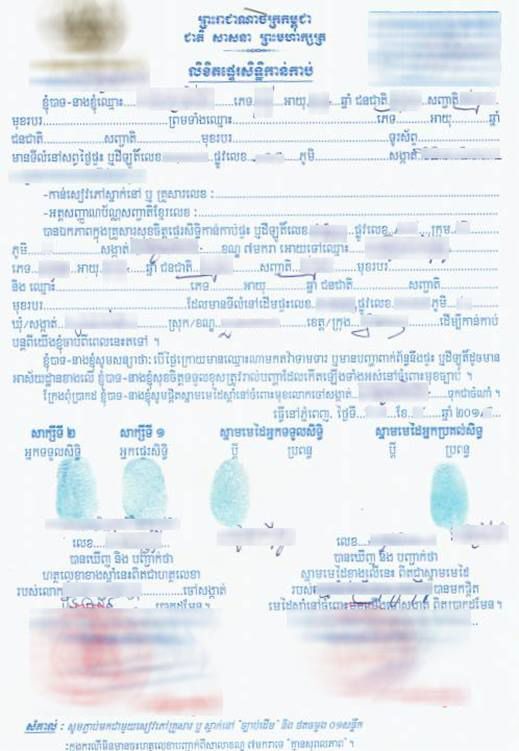 ព្រះរាជាណាចក្រកម្ពុជា
ជាតិ សាសនា ព្រះមហាក្សត្រ
លិខិតផ្ទេរសិទ្ធិកាន់កាប់
ខ្ញុំបាទ-នាងខ្ញុំឈ្មោះ ... ភេទ ... អាយុ ... ឆ្នាំ ជនជាតិ ... សញ្ជាតិ ...
មុខរបរ ... ព្រមទាំងឈ្មោះ ... ភេទ ... អាយុ ... ឆ្នាំ
ជនជាតិ ... សញ្ជាតិ ... មុខរបរ ... ទូរស័ព្ទ ...
មានទីលំនៅសព្វថ្ងៃផ្ទះ ឬដីឡូតិ៍លេខ ... ផ្លូវលេខ ... ភូមិ ... សង្កាត់
-កាន់សៀវភៅស្នាក់នៅ ឬ គ្រួសារលេខ : ...
-អត្តសញ្ញាណប័ណ្ណសញ្ជាតិខ្មែរលេខ : ...
បានឯកភាពក្នុងគ្រួសារសុខចិត្តផ្ទេរសិទ្ធិកាន់កាប់ផ្ទះ ឬដីឡូតិ៍លេខ ... ផ្លូវលេខ ... ក្រុម ...
ភូមិ ... សង្កាត់ ... ខណ្ឌ ៧មករា អោយទៅឈ្មោះ ...
ភេទ ... អាយុ ... ឆ្នាំ ជនជាតិ ... សញ្ជាតិ ... មុខរបរ ...
និង ឈ្មោះ ... ភេទ ... អាយុ ... ឆ្នាំ ជនជាតិ ... សញ្ជាតិ ...
មុខរបរ ... ដែលមានទីលំនៅដើមផ្ទះលេខ ... ផ្លូវលេខ ... ភូមិ ...
ឃុំ/សង្កាត់ ... ស្រុក/ខណ្ឌ ... ខេត្ត/ក្រុង ... ដើម្បីកាន់កាប់
បន្តពីយើងខ្ញុំចាប់ពីពេលនេះតទៅ ។
ខ្ញុំបាទ-នាងខ្ញុំសូមសន្យាថា: បើថ្ងៃក្រោយមានឈ្មោះណាមកតវ៉ាទាមទារ ឬមានបញ្ហាពាក់ព័ន្ធនឹងផ្ទះ ឬដីឡូតិ៍ដូចមាន
អាស័យដ្ឋានខាងលើ ខ្ញុំបាទ-នាងខ្ញុំសុខចិត្តទទួលខុសត្រូវរាល់បញ្ហាដែលកើតឡើងទាំងអស់នៅចំពោះមុខច្បាប់ ។
ក្រែងពុំប្រាកដ ខ្ញុំបាទ-នាងខ្ញុំសូមផ្តិតស្នាមមេដៃស្តាំនៅចំពោះមុខលោកចៅសង្កាត់ ... ទុកជាចំណាំ ។
ធ្វើនៅភ្នំពេញ, ថ្ងៃទី ... ខែ ... ឆ្នាំ ២០១
សាក្សីទី ២ សាក្សីទី ១ ស្នាមមេដៃអ្នកទទួលសិទ្ធិ ស្នាមមេដៃអ្នកប្រគល់សិទ្ធិ
អ្នកទទួលសិទ្ធិ អ្នកផ្ទេរសិទ្ធិ ប្តី ប្រពន្ធ ប្តី ប្រពន្ធ
លេខ ... លេខ ...
បានឃើញ និង បញ្ជាក់ថា បានឃើញ និង បញ្ជាក់ថា
ហត្ថលេខាខាងស្តាំនេះពិតជាហត្ថលេខា ស្នាមមេដៃខាងលើនេះ ពិតជាស្នាមមេដៃ
របស់លោក ... ចៅសង្កាត់ របស់ ... បានមកផ្តិត
ប្រាកដមែន ។ មេដៃស្តាំនៅចំពោះមុខយើងចៅសង្កាត់ ពិតប្រាកដមែន ។
សំគាល់ : សូមភ្ជាប់មកជាមួយសៀវភៅគ្រួសារ ឬ ស្នាក់នៅ "ច្បាប់ដើម" និង ថតចម្លង ០១សន្លឹក
:ក្នុងករណីមិនមានចុះហត្ថលេខាបញ្ជាក់ពីសាលាខណ្ឌ ៧មករាទេ "គ្មានសុពលភាព" ។